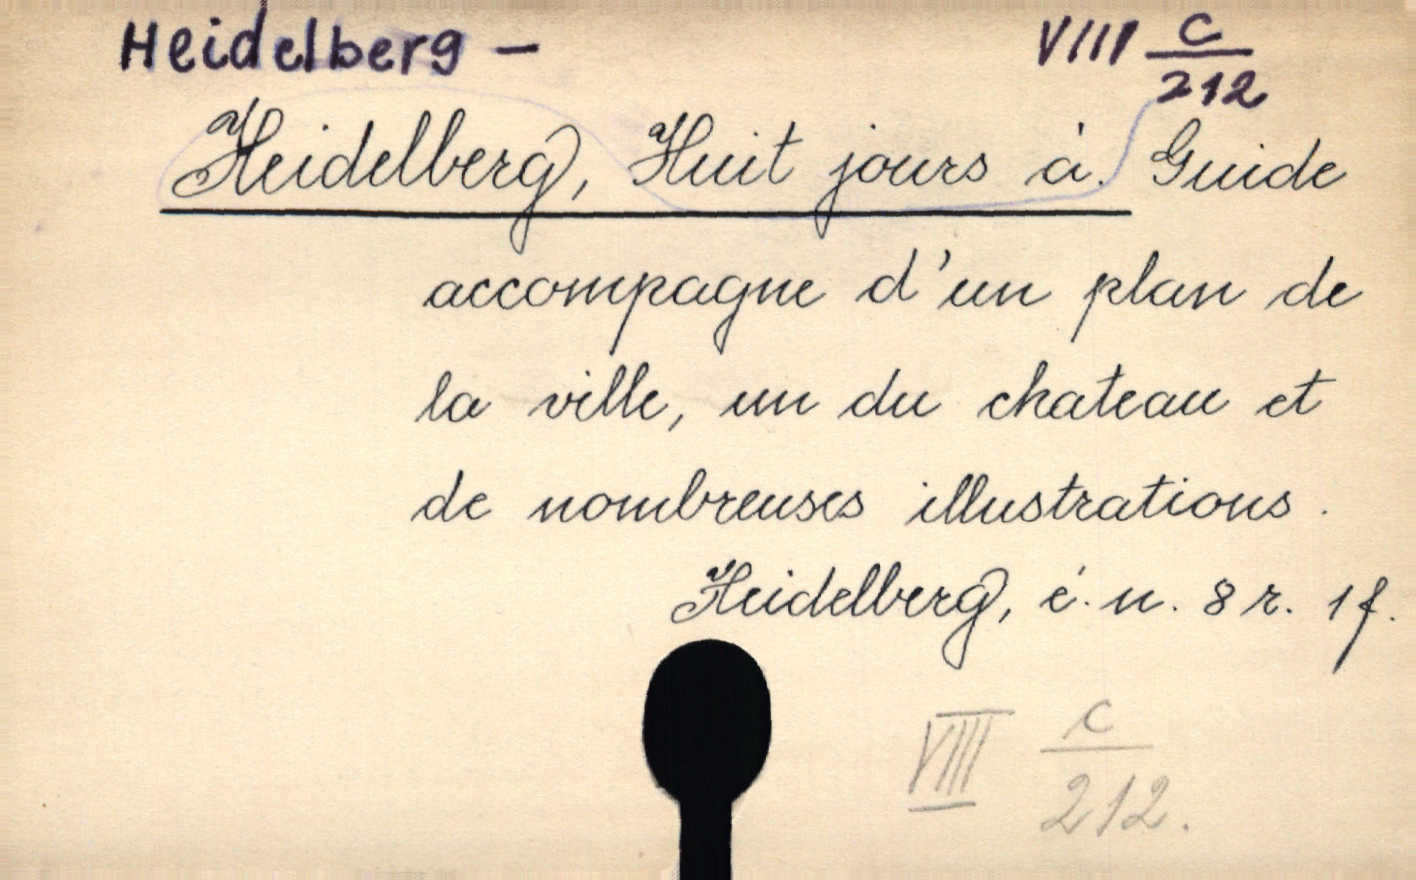 Heidelberg - VIII C/212
Heidelberg, Huit jours à. Guide
accompagne d'un plan de
la ville, un du chateau et
de nombreuses illustrations.
Heidelberg, é. n. 8 r. 1 f.
VIII c/212.